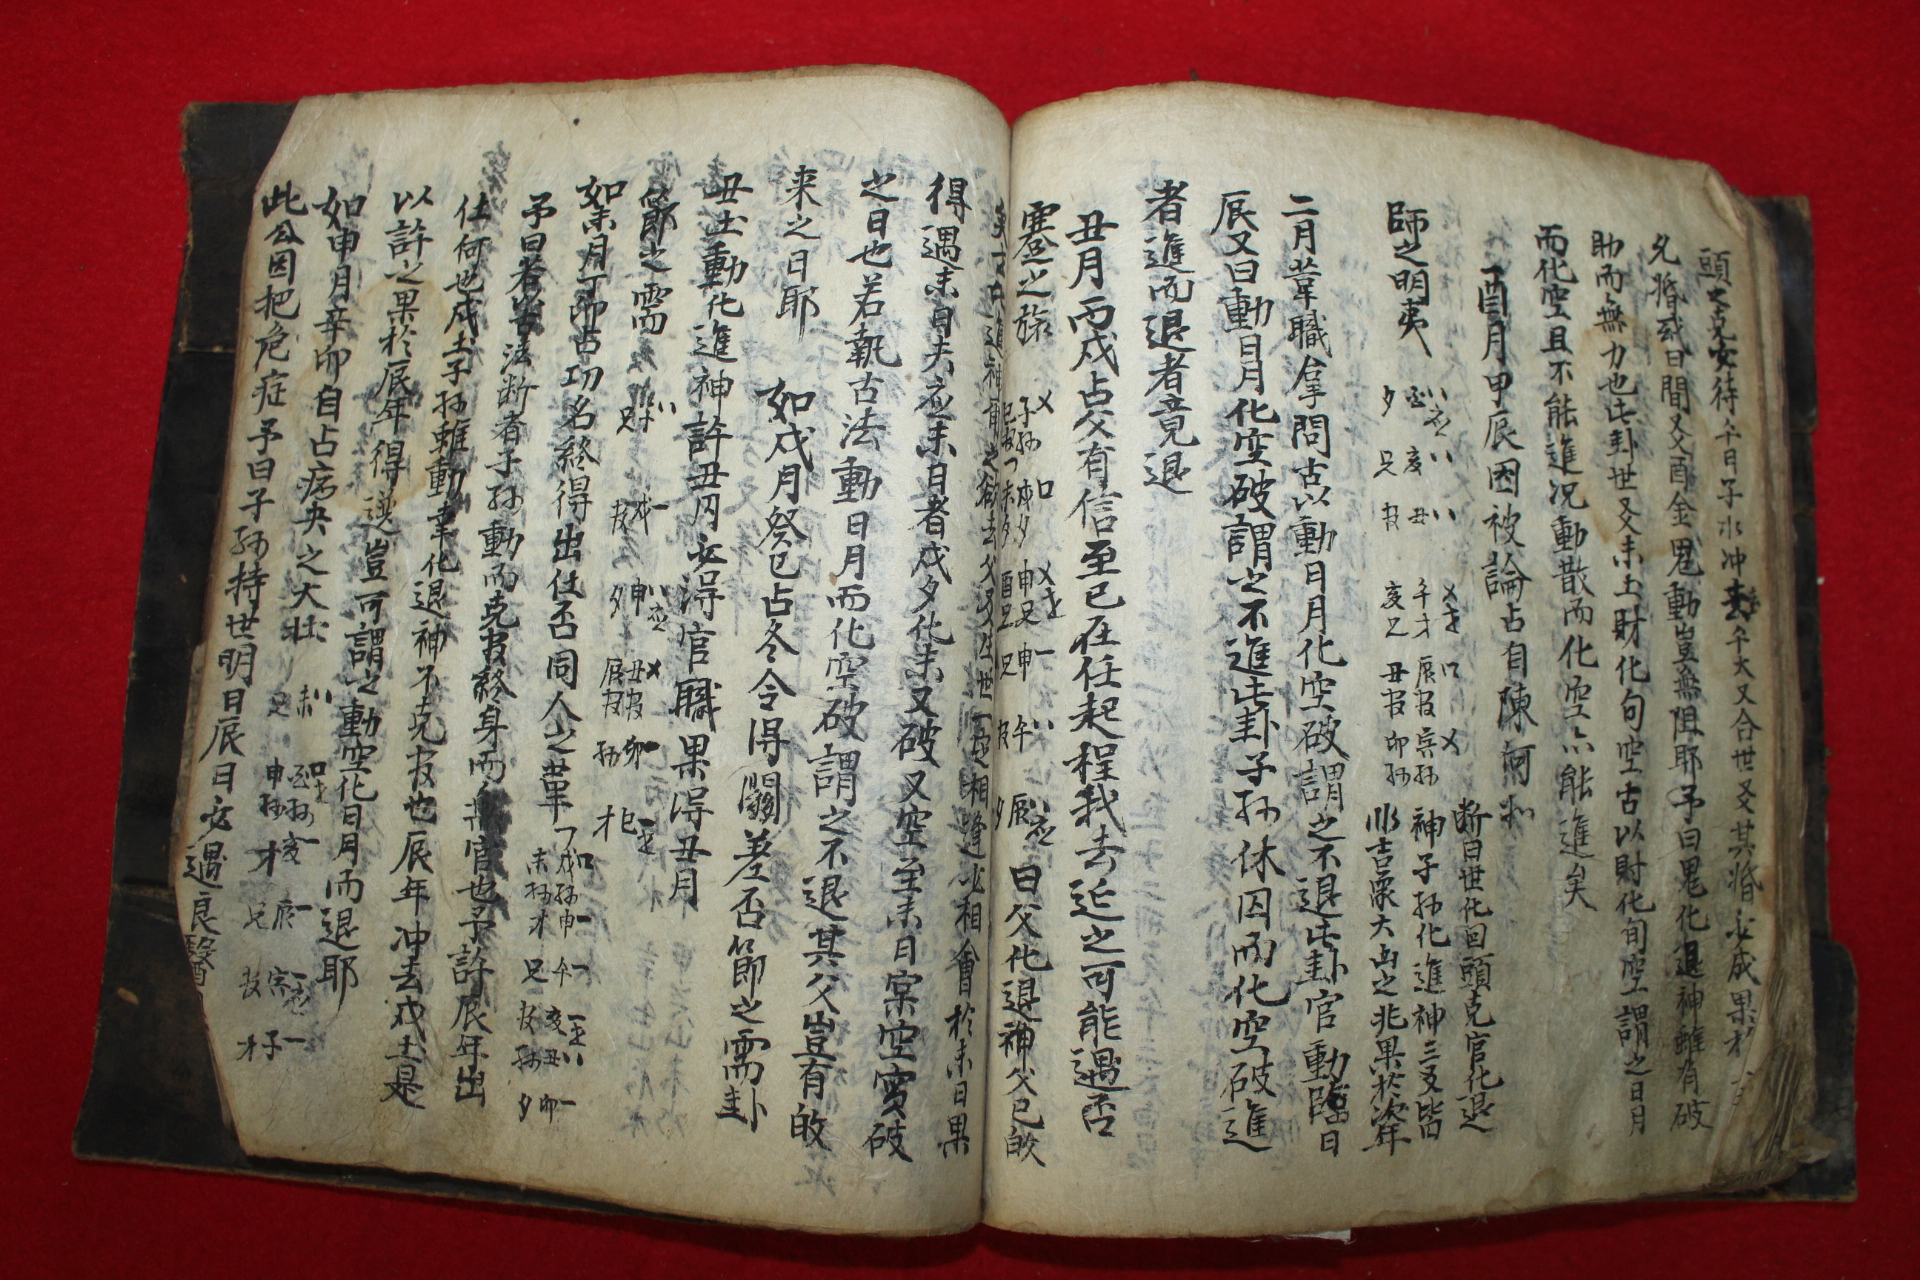 頭之克必待午日子水冲去午火又合世爻其婚必成果於
允婚或曰間爻酉金鬼動豈無阻耶予曰鬼化退神雖有破
助而無力也此卦世爻未土財化旬空古以財化旬空謂之日月
而化空且不能進况動散而化空亦能進矣
酉月甲辰因被論占自陳何如
師之明夷
酉應 亥 丑 午才世 辰 寅
夕 兄 官 亥兄 丑官 卯孫
斷曰世化回頭克官化退
神子孫化進神三爻皆
非吉象大凶之兆果於次年
二月革職拿問古以動日月化空破謂之不退此卦官動臨日
辰又曰動日月化空破謂之不進此卦子孫休囚而化空破進
者進而退者竟退
丑月丙戌占父有信至已在任起程我去迎之可能遇否
蹇之旅
子孫 戌夕 申兄世 申 午 辰應
曰父化退神父已的
得遇未日夫应未日者戌夕化未又破又空至未日实空實破
之日也若執古法動日月而化空破謂之不退其父豈有的
来之日耶
如戌月癸巳占冬令得關差否節之需卦
丑土動化進神許丑月必得官職果得丑月
節之需
兄 戌 申應 丑官 卯 巳世
官 夕 辰官 孫 才
如未月丁卯占功名終得出仕否同人之革
戌孫 申 午 亥世 丑 卯
未孫 才 兄 官 孫 夕
予曰若古法斷者子孫動而克官終身而無官也予許辰年出
仕何也戌土子孫雖動幸化退神不克官也辰年冲去戌土是
以許之果於辰年得選豈可謂之動空化日月而退耶
如申月辛卯自占病夬之大壮
未 酉孫世 亥 辰 寅應 子
兄 申孫 才 兄 官 才
此公因把危症予曰子孫持世明日辰日必遇良醫